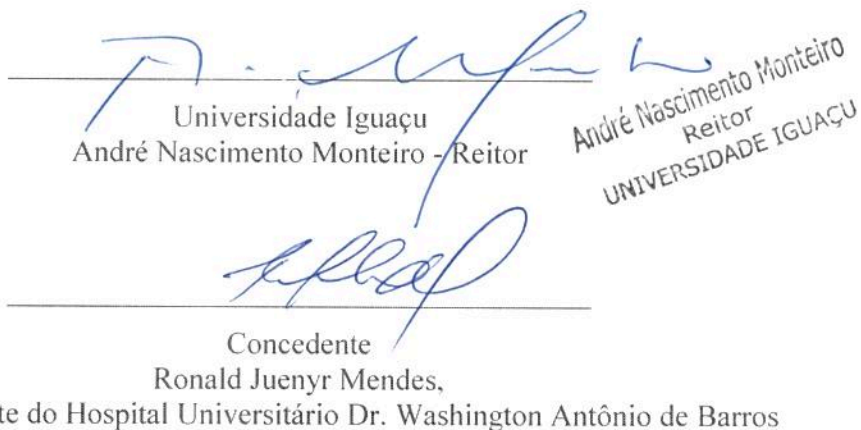 Universidade Iguaçu
André Nascimento Monteiro - Reitor
André Nascimento Monteiro
Reitor
UNIVERSIDADE IGUAÇU
Concedente
Ronald Juenyr Mendes,
te do Hospital Universitário Dr. Washington Antônio de Barros